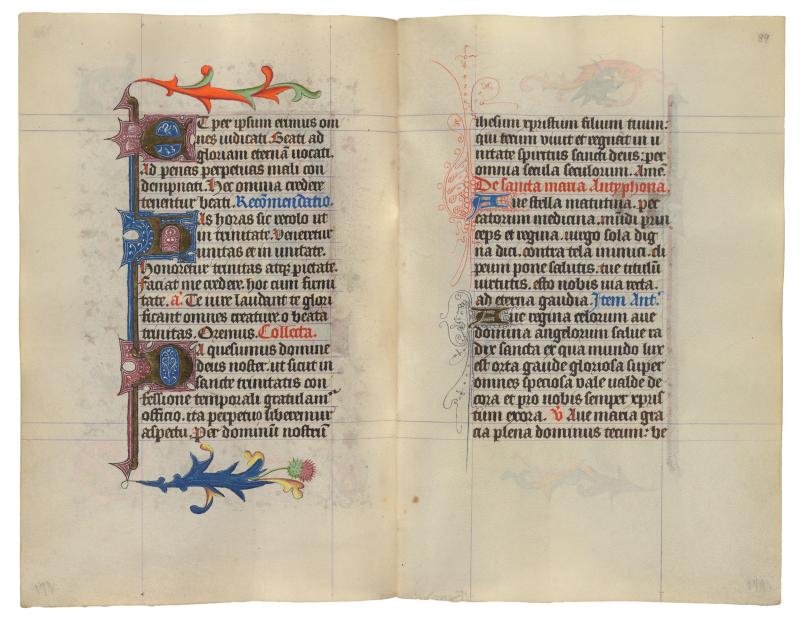 ET per ipsum erimus om
nes iudicati. Beati ad
gloriam eternā uocati.
Ad penas perpetuas mali con
dempnati. Hec omnia credere
tenentur beati. Recōmendatio.
HAs horas sic recolo ut
in trinitate. Veneretur
unitas et in unitate.
Honoretur trinitas atqꝫ pietate.
Faciat me credere. hoc cum firmi
tate. a. Te iure laudant te glori
ficant omnes creature o beata
trinitas. Oremus. Collecta.
DA quesumus domine
deus noster. ut sicut in
sancte trinitatis con
fessione temporali gratulam
officio. ita perpetuo liberemur
aspectu. Per dominū nostrū
89
ihesum xpristum filium tuum:
qui tecum viuit et regnat in u
nitate spiritus sancti deus: per
omnia secula seculorum. Amē.
De sancta maria Antyphona.
Aue stella matutina. pec
catorum medicina. mūdi prin
ceps et regina. uirgo sola dig
na dici. contra tela inimici. cli
peum pone salutis. tue titulū
uirtutis. esto nobis uia recta.
ad eterna gaudia. Item Ant.
Aue regina celorum aue
domina angelorum salue ra
dix sancta ex qua mundo lux
est orta gaude gloriosa super
omnes speciosa vale ualde de
cora et pro nobis semper xpris
tum exora. V Aue maria gra
cia plena dominus tecum: be